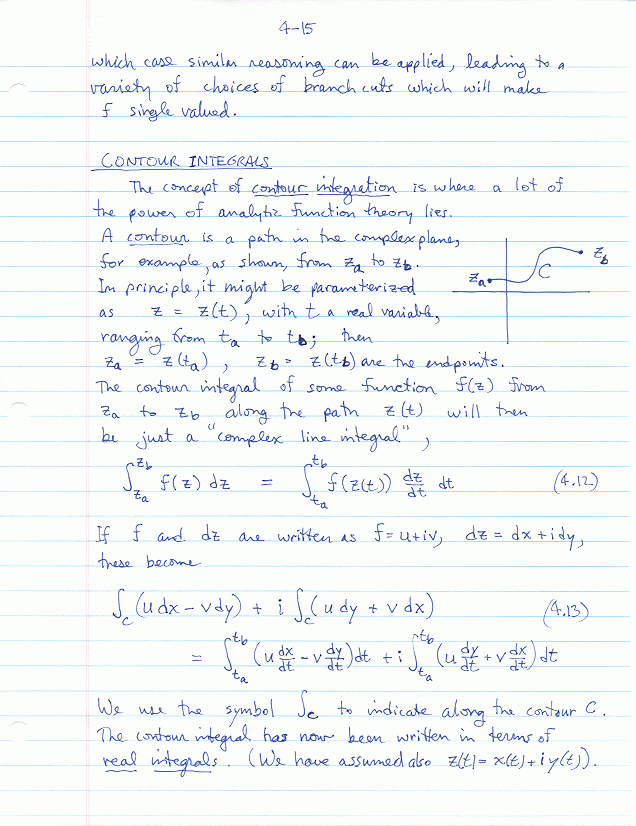 4-15
which case similar reasoning can be applied, leading to a
variety of choices of branch cuts which will make
f single valued.
CONTOUR INTEGRALS
The concept of contour integration is where a lot of
the power of analytic function theory lies.
A contour is a path in the complex plane,
for example, as shown, from z_a to z_b.
z_a C z_b
In principle, it might be parameterized
as z = z(t), with t a real variable,
ranging from t_a to t_b; then
z_a = z(t_a), z_b = z(t_b) are the endpoints.
The contour integral of some function f(z) from
z_a to z_b along the path z(t) will then
be just a "complex line integral",
∫_{z_a}^{z_b} f(z) dz = ∫_{t_a}^{t_b} f(z(t)) dz/dt dt (4.12)
If f and dz are written as f = u+iv, dz = dx + idy,
these become
∫_C (u dx - v dy) + i ∫_C (u dy + v dx) (4.13)
= ∫_{t_a}^{t_b} (u dx/dt - v dy/dt) dt + i ∫_{t_a}^{t_b} (u dy/dt + v dx/dt) dt
We use the symbol ∫_C to indicate along the contour C.
The contour integral has now been written in terms of
real integrals. (We have assumed also z(t) = x(t) + i y(t)).